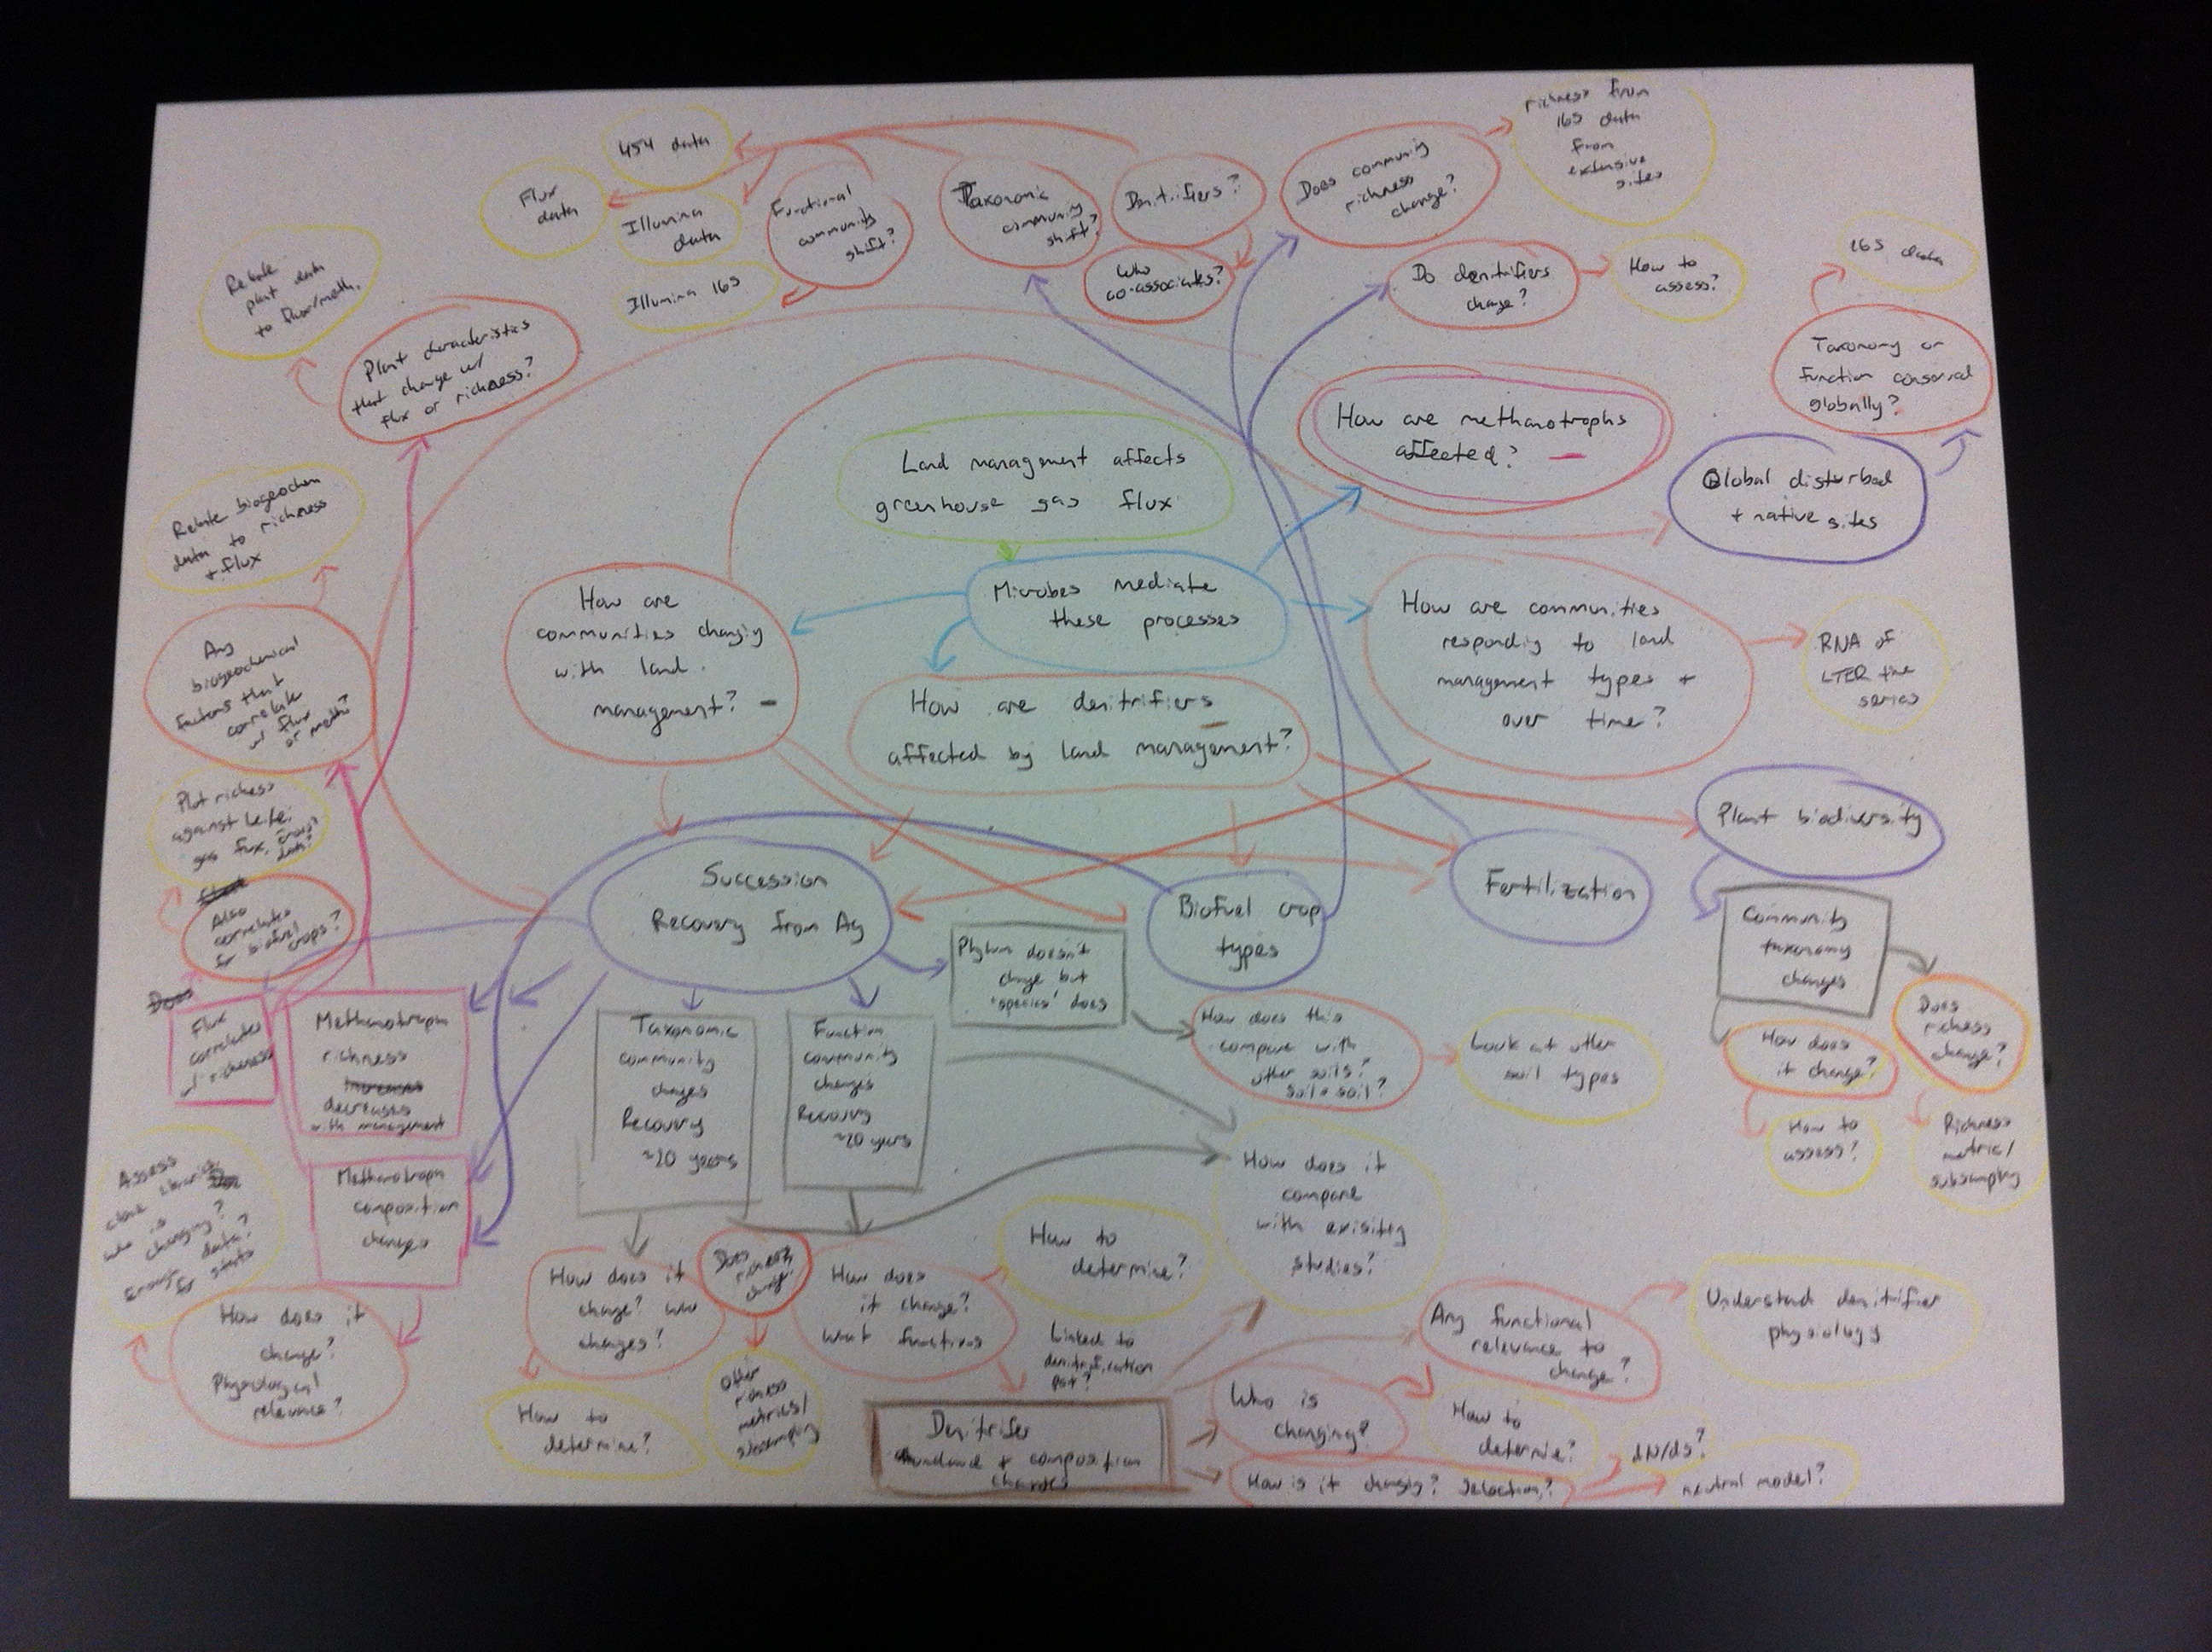 454 data
Flux
data
Illumina
data
Illumina 16s
Functional
community
shift?
Taxonomic
community
shift?
Denitrifiers?
Who
co-associates?
Does community
richness
change?
richness from
16S data
from
extensive
sites
Do denitrifiers
change?
How to
assess?
16S data
Taxonomy or
function conserved
globally?
Global disturbed
+ native sites
Relate
plant data
to flux/meth.
Plant characteristics
that change w/
flux or richness?
How are methanotrophs
affected?
Land management affects
greenhouse gas flux
Relate biogeochem
data to richness
+ flux
Microbes mediate
these processes
How are
communities changing
with land
management?
How are communities
responding to land
management types +
over time?
RNA of
LTER time
series
Any
biogeochemical
factors that
correlate
w/ flux
or meth?
How are denitrifiers
affected by land management?
Plot richness
against
gas flux,
data?
Plant biodiversity
Succession
Recovery from Ag
Biofuel crop
types
Fertilization
Also
correlates
for biofuel
crops?
Does
Phylum doesn't
change but
'species' does
Community
taxonomy
changes
Flux
correlates
w/ richness
Methanotroph
richness
increases
decreases
with management
Taxonomic
community
changes
Recovery
~20 years
Function
community
changes
Recovery
~20 years
How does this
compare with
other soils?
Soil = soil?
Look at other
soil types
How does
it change?
Does
richness
change?
How to
assess?
Richness
metric/
subsampling
Assess
clone libraries,
who is
changing?
Enough data?
for stats
Methanotroph
composition
changes
How does it
compare
with exisiting
studies?
How does it
change?
Physiological
relevance?
How does it
change? who
changes?
Does
richness
change?
How does
it change?
what functions
How to
determine?
How to
determine?
Other
richness
metrics/
subsampling
Linked to
denitrification
Denitrifer
abundance + composition
changes
Who is
changing?
Any functional
relevance to
change?
Understand denitrifier
physiology
How to
determine?
How is it changing? Selection?
dN/dS?
neutral model?